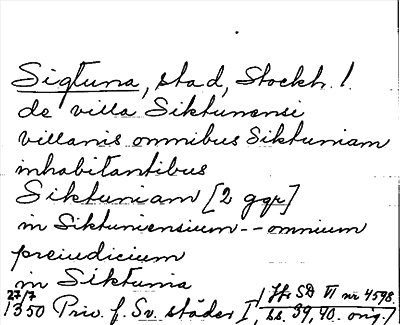 Sigtuna, stad, Stockh. l.
de villa Siktunensi
villanis omnibus Siktuniam
inhabitantibus
Siktuniam [2 ggr]
in Siktuniensium -- omnium
preiudicium
in Siktunia
27/7 1350 Priv. f. Sv. städer I, ss. 39, 40. orig./
/ Jfr SD VI nr 4598.